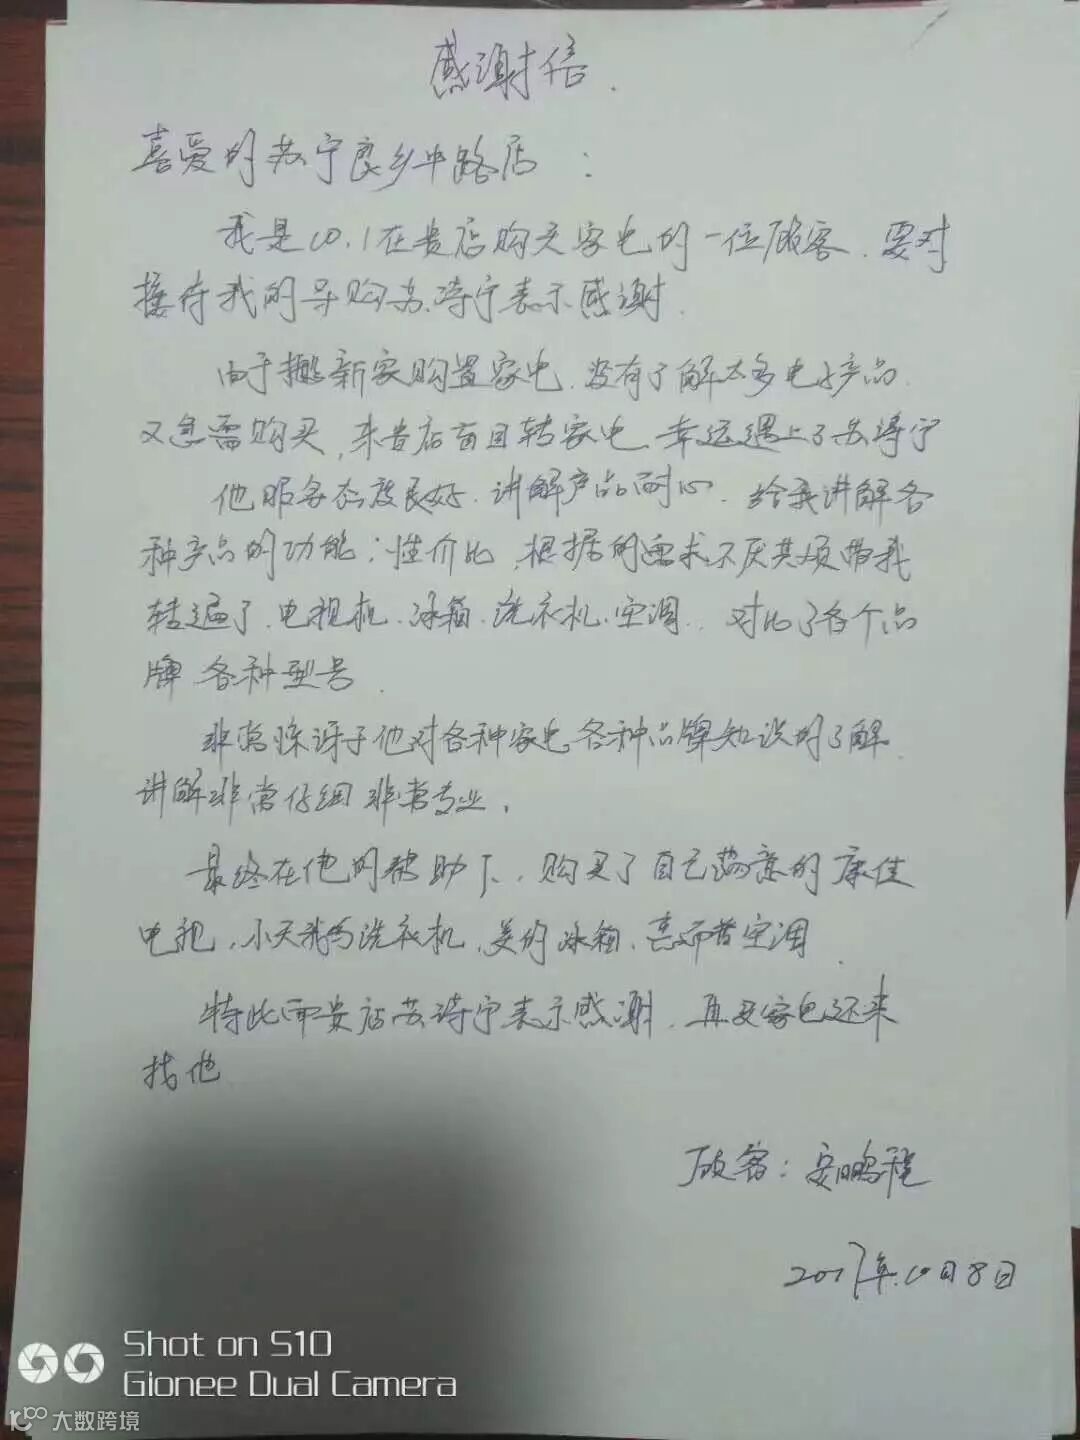 感谢信.
喜爱的苏宁良乡中路店：
我是10.1在贵店购买家电的一位顾客.要对
接待我的导购苏诗宁表示感谢.
由于搬新家购置家电.没有了解太多电子产品.
又急需购买,来贵店盲目转家电.幸运遇上了苏诗宁
他服务态度良好.讲解产品耐心.给我讲解各
种产品的功能；性价比,根据的需求不厌其烦带我
转遍了.电视机.冰箱.洗衣机.空调..对比了各个品
牌各种型号.
非常惊讶于他对各种家电各种品牌知识的了解.
讲解非常仔细非常专业.
最终在他的帮助下.购买了自己满意的康佳
电视.小天鹅洗衣机.美的冰箱.空调.
特此向贵店苏诗宁表示感谢.再买家电还来
找他.
顾客：安鹏程
2017年.10月8日
Shot on S10
Gionee Dual Camera
大数跨境